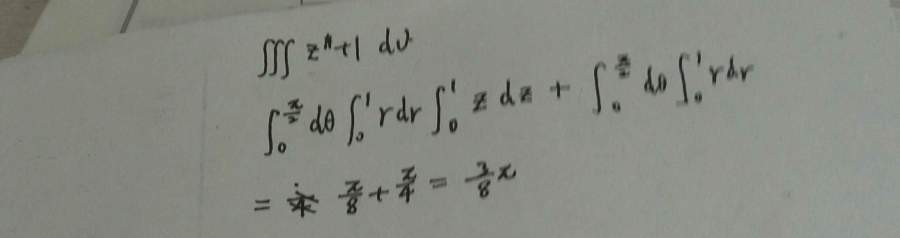 ∭ z^n+1 dv
∫₀^{π/2} dθ ∫₀¹ r dr ∫₀¹ z dz + ∫₀^{π/2} dθ ∫₀¹ r dr
= π/8 + π/4 = 3/8 π